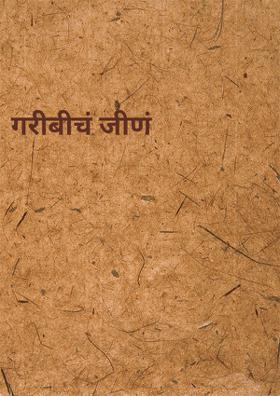 गरीबीचं जीणं